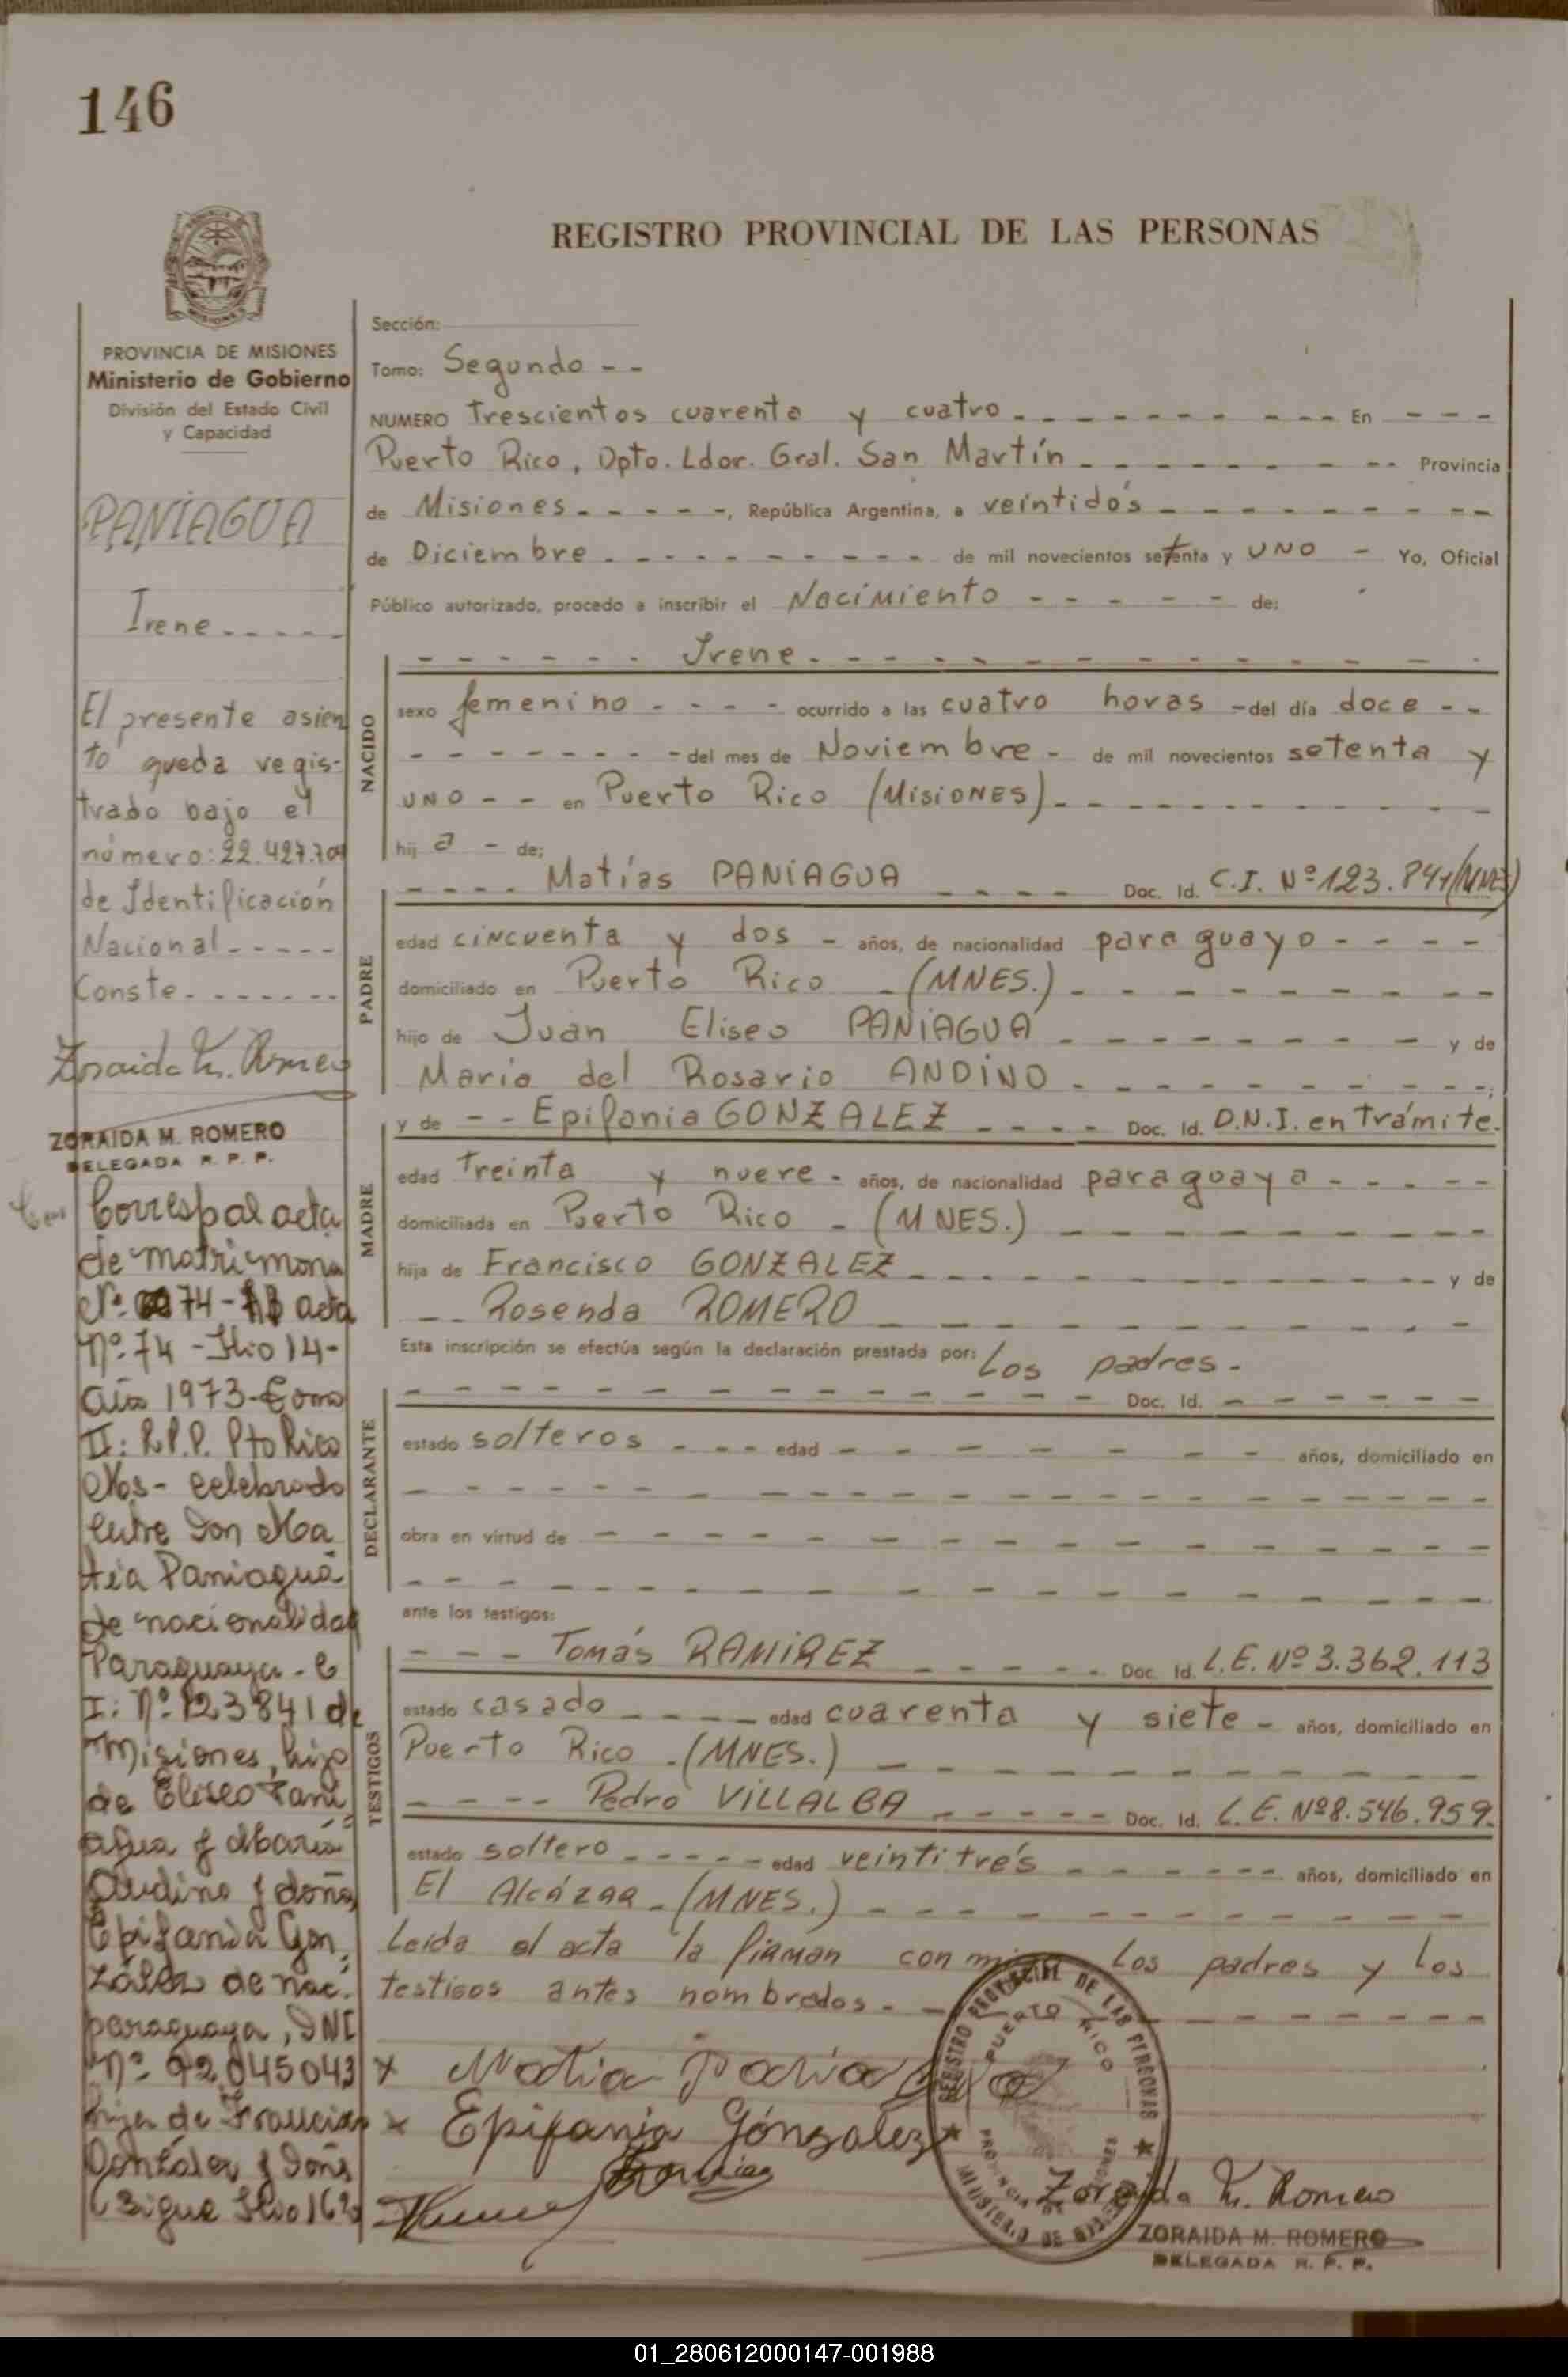 146
REGISTRO PROVINCIAL DE LAS PERSONAS
PROVINCIA DE MISIONES
Ministerio de Gobierno
División del Estado Civil
y Capacidad
PANIAGUA
Irene - - - - -
El presente asien
to queda regis-
trado bajo el
número: 22.427.704
de Identificación
Nacional - - - - -
Conste - - - - - - -
Zoraida M. Romero
ZORAIDA M. ROMERO
DELEGADA R. P. P.
Corresp al acta
de matrimonio
Nº 74 - acta
Nº 74 - folio 14 -
año 1973 - Tomo
II: R.P.P. Pto Rico
Mos - celebrado
entre Don Ma
tía Paniagua
de nacionalidad
Paraguaya - C
I: Nº 123841 de
Misiones, hijo
de Eliseo Pani
agua y María
Andino y doña
Epifania Gon
zález de nac.
paraguaya, DNI
Nº 92.045043
hija de Francisco
González y Doña
Sigue folio 162
Sección:
Tomo: Segundo - -
NUMERO Trescientos cuarenta y cuatro - - - - - - - - - - En - - -
Puerto Rico, Dpto. Ldor. Gral. San Martín - - - - - - - - - Provincia
de Misiones - - - - - -, República Argentina, a veintidós - - - - - - - - -
de Diciembre - - - - - - - - - - - de mil novecientos setenta y UNO - Yo, Oficial
Público autorizado, procedo a inscribir el Nacimiento - - - - - de:
- - - - - - Irene - - - - - - - - - - - - -
NACIDO
sexo femenino - - - - ocurrido a las cuatro horas - del día doce - -
- - - - - - - - del mes de Noviembre - de mil novecientos setenta y
UNO - - en Puerto Rico (Misiones) - - - - - - - - - -
hij a - de:
PADRE
- - - - Matías PANIAGUA - - - - Doc. Id. C.I. Nº 123.841 (MNES)
edad cincuenta y dos - años, de nacionalidad paraguayo - - - -
domiciliado en Puerto Rico - (MNES.) - - - - - - - - -
hijo de Juan Eliseo PANIAGUA - - - - - - - - y de
Maria del Rosario ANDINO - - - - - - - - - -;
MADRE
y de - - Epifania GONZALEZ - - - - Doc. Id. D.N.I. en Trámite.
edad treinta y nueve - años, de nacionalidad paraguaya - - - - -
domiciliada en Puerto Rico - (MNES.) - - - - - - - - - -
hija de Francisco GONZALEZ - - - - - - - - - - - - y de
- - Rosenda ROMERO - - - - - - - - - - -
Esta inscripción se efectúa según la declaración prestada por: Los padres -
DECLARANTE
- - - - - - - - - - - - - - - - Doc. Id. - - - - - -
estado solteros - - - edad - - - - - - - años, domiciliado en
- - - - - - - - - - - - - - - - - - - - - -
obra en virtud de - - - - - - - - - - - - - - - -
- - - - - - - - - - - - - - - - - - - -
ante los testigos:
TESTIGOS
- - - Tomás RAMIREZ - - - - - Doc. Id. L.E. Nº 3.362.113
estado casado - - - - - edad cuarenta y siete - años, domiciliado en
Puerto Rico - (MNES.) - - - - - - - - - - -
- - - - Pedro VILLALBA - - - - - Doc. Id. L.E. Nº 8.546.959.
estado soltero - - - - - edad veintitrés - - - - - - - años, domiciliado en
El Alcázar - (MNES.) - - - - - - - - - - -
Leida el acta la firman conmigo Los padres y los
testigos antes nombrados - - - - - - - - -
x Matia
x Epifania Gónzalez
REGISTRO PROVINCIAL DE LAS PERSONAS
PUERTO RICO
PROVINCIA DE MISIONES
MINISTERIO DE GOBIERNO
Zoraida M. Romero
ZORAIDA M. ROMERO
DELEGADA R. P. P.
01_280612000147-001988